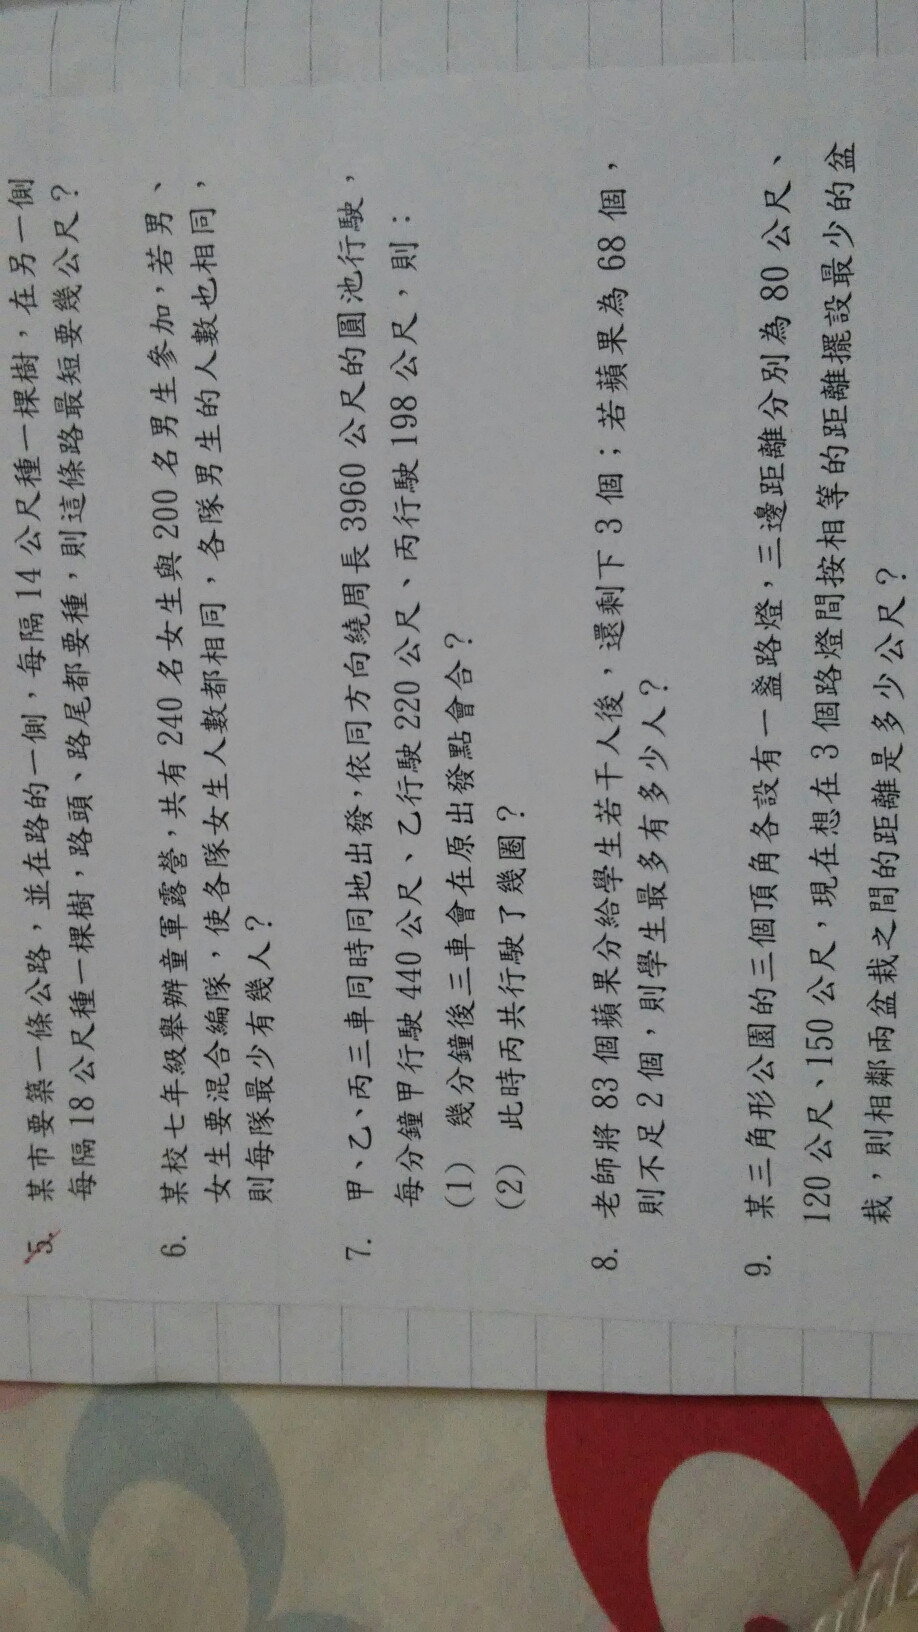 5. 某市要築一條公路，並在路的一側，每隔14公尺種一棵樹，在另一側
每隔18公尺種一棵樹，路頭、路尾都要種，則這條路最短要幾公尺？
6. 某校七年級舉辦童軍露營，共有240名女生與200名男生參加，若男、
女生要混合編隊，使各隊女生人數都相同，各隊男生的人數也相同，
則每隊最少有幾人？
7. 甲、乙、丙三車同時同地出發，依同方向繞周長3960公尺的圓池行駛，
每分鐘甲行駛440公尺、乙行駛220公尺、丙行駛198公尺，則：
(1) 幾分鐘後三車會在原出發點會合？
(2) 此時丙共行駛了幾圈？
8. 老師將83個蘋果分給學生若干人後，還剩下3個；若蘋果為68個，
則不足2個，則學生最多有多少人？
9. 某三角形公園的三個頂角各設有一盞路燈，三邊距離分別為80公尺、
120公尺、150公尺，現在想在3個路燈間按相等的距離擺設最少的盆
栽，則相鄰兩盆栽之間的距離是多少公尺？